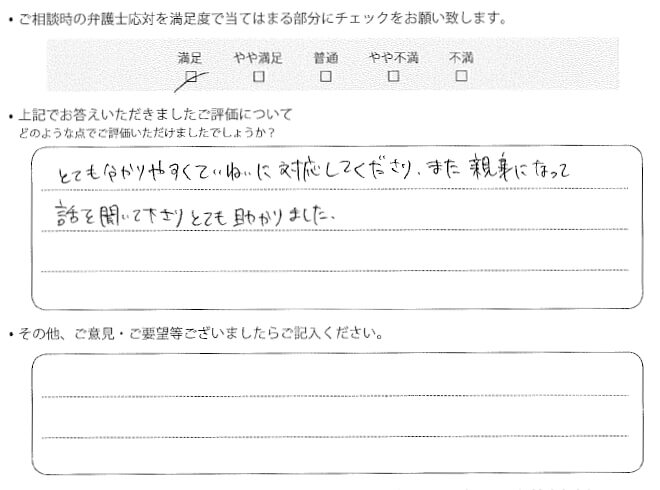 ・ご相談時の弁護士応対を満足度で当てはまる部分にチェックをお願い致します。
満足 やや満足 普通 やや不満 不満
□ □ □ □ □
・上記でお答えいただきましたご評価について
どのような点でご評価いただけましたでしょうか？
とても分かりやすくていねいに対応してくださり、また親身になって
話を聞いて下さりとても助かりました。
・その他、ご意見・ご要望等ございましたらご記入ください。